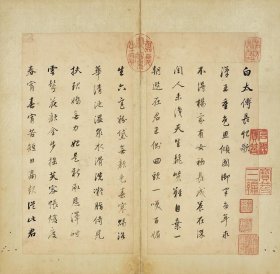 白太傅長恨歌
漢王重色思傾國御宇多年求
不得楊家有女初長成養在深
閨人未識天生麗質難自棄一
朝選在君王側回頭一笑百媚
生六宮粉黛無顏色春寒賜浴
華清池溫泉水滑洗凝脂侍兒
扶起嬌無力始是新承恩澤時
雲鬢花顏金步搖芙蓉帳暖度
春宵春宵苦短日高起從此君